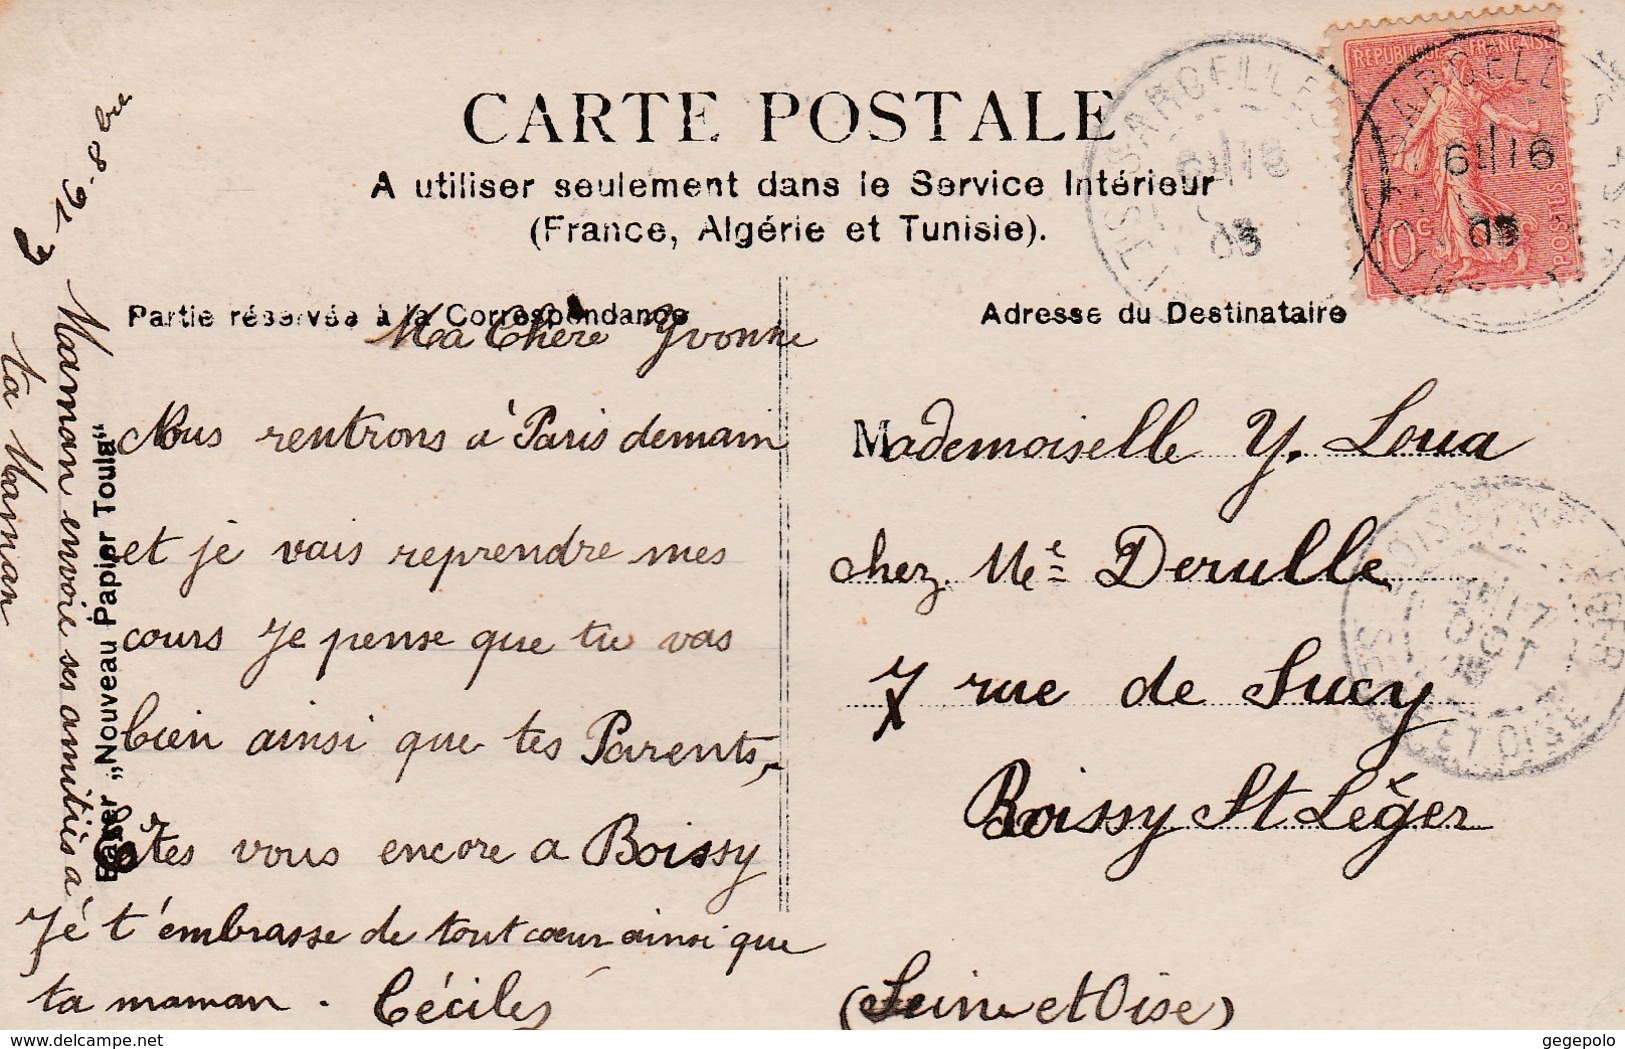 CARTE POSTALE
A utiliser seulement dans le Service Intérieur
(France, Algérie et Tunisie).
Partie réservée à la Correspondance
Adresse du Destinataire
REPUBLIQUE FRANÇAISE
10c
POSTES
05
05
Ma Chère Yvonne
Nous rentrons à Paris demain
et je vais reprendre mes
cours Je pense que tu vas
bien ainsi que tes Parents,
êtes vous encore a Boissy
Jé t'émbrasse de tout cœur ainsi que
ta maman. Cécile
Mademoiselle Y. Loua
chez Me Derulle
7 rue de Sucy
Boissy St Léger
(Seine et Oise)
Maman envoie ses amitiès a
ta Maman
„Nouveau Papier Toula"
OCT
www.delcampe.net
gegepolo